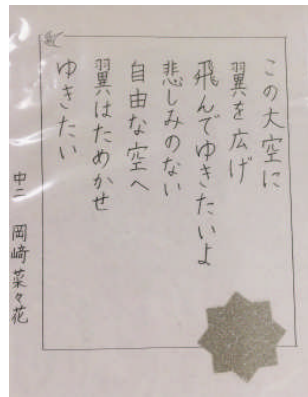 この大空に
翼を広げ
飛んでゆきたいよ
悲しみのない
自由な空へ
翼はためかせ
ゆきたい
中二 岡崎菜々花